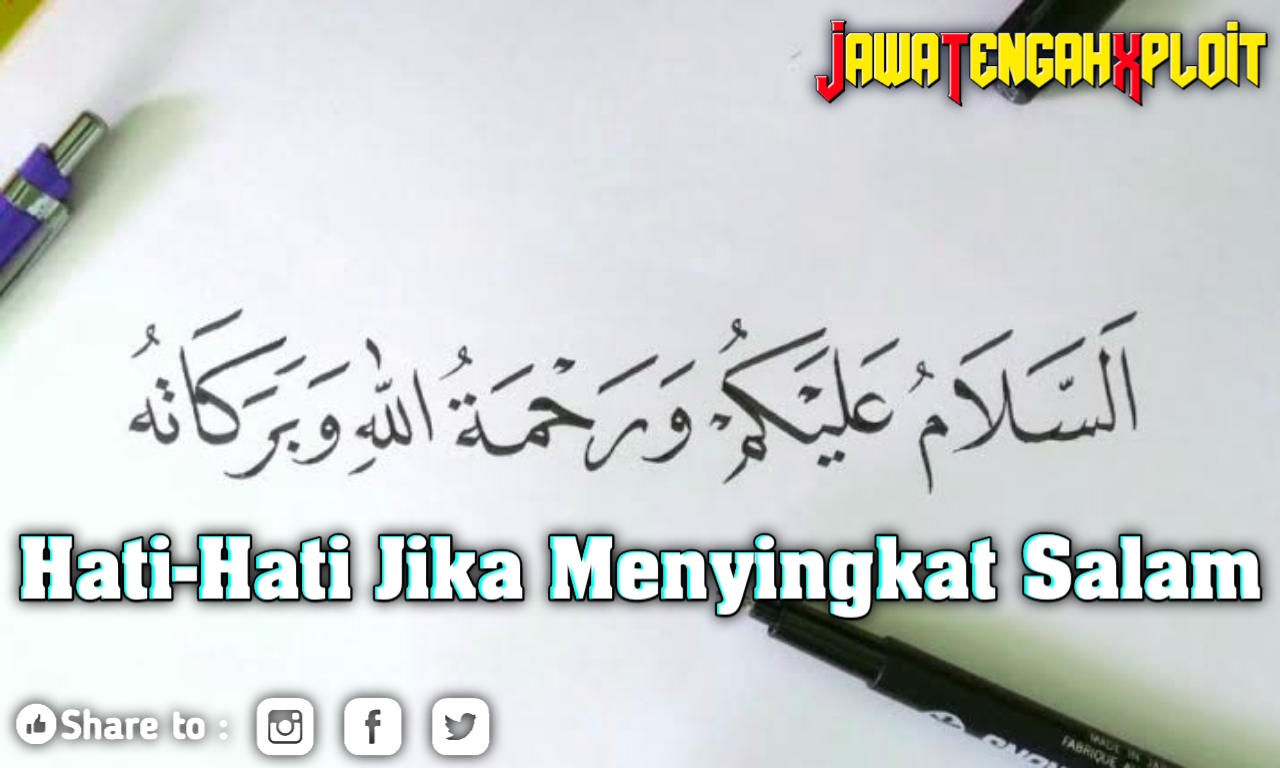 JAWATENGAHXPLOIT
اَلسَّلَامُ عَلَيْكُمْ وَرَحْمَةُ اللهِ وَبَرَكَاتُهُ
Hati-Hati Jika Menyingkat Salam
Share to :
MADE IN
FABRIQUE